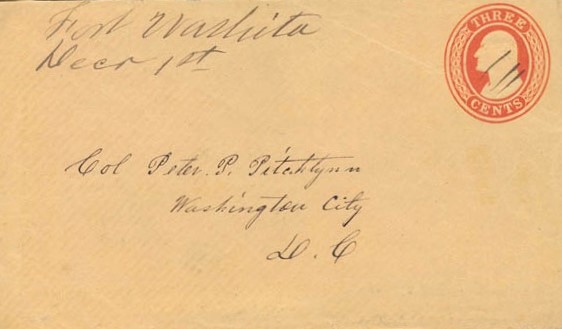 Fort Washita
Decr 1st
THREE
CENTS
Col Peter. P. Pitchlynn
Washington City
D. C